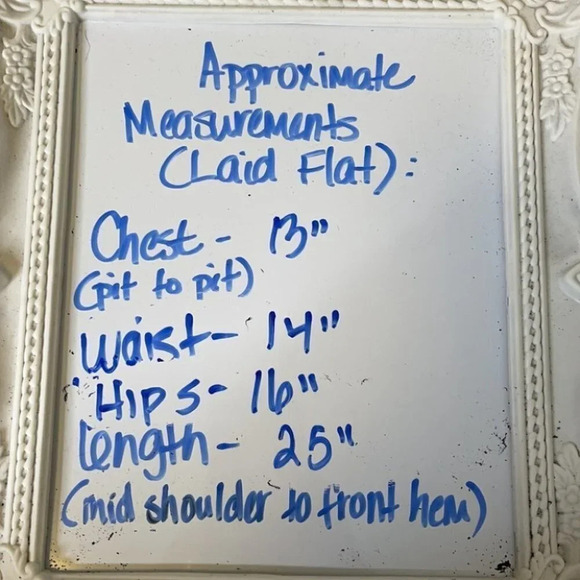 Approximate
Measurements
(Laid Flat):
Chest - 13"
(pit to pit)
Waist - 14"
Hips - 16"
length - 25"
(mid shoulder to front hem)